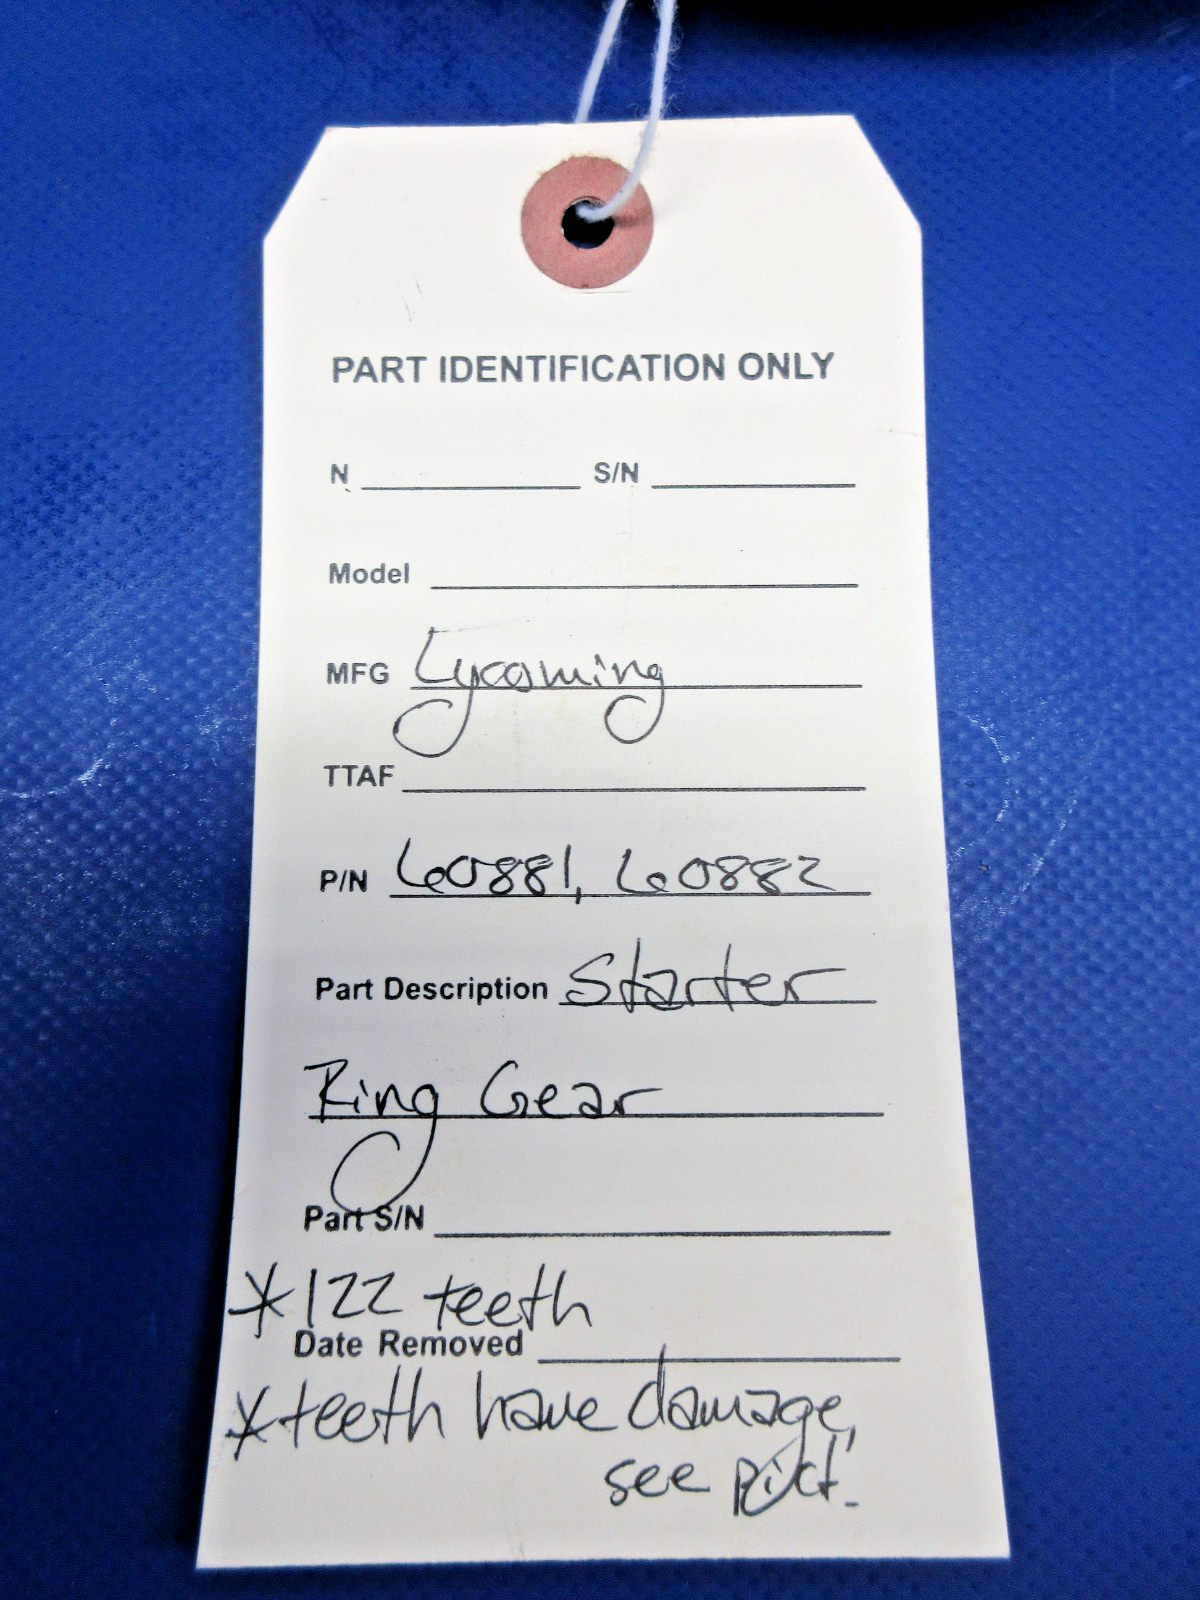 PART IDENTIFICATION ONLY
N S/N
Model
MFG Lycoming
TTAF
P/N 60881, 60882
Part Description Starter
Ring Gear
Part S/N
*122 teeth
Date Removed
*teeth have damage,
see pict!